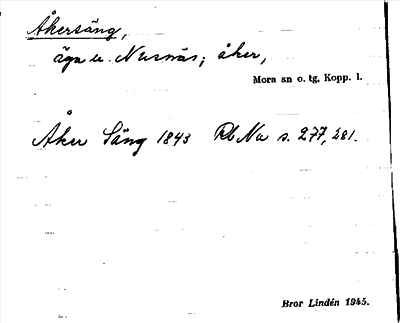 Åkersäng,
äga u. Nusnäs; åker,
Mora sn o. tg, Kopp. l.
Åker Säng 1843 Rb Na s. 277, 281.
Bror Lindén 1945.